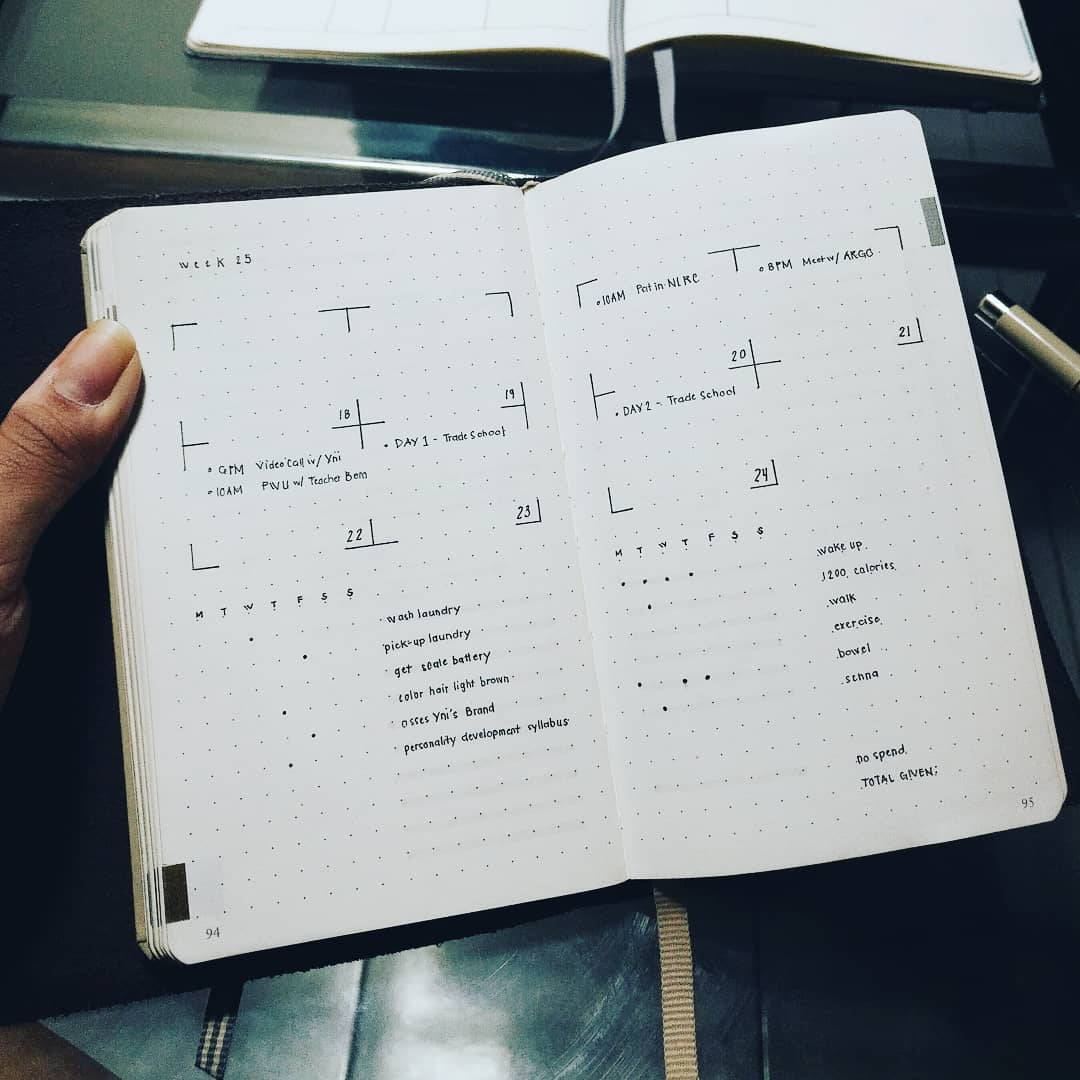 week 25
18
19
• 6PM Video Call w/ Yni
• 10AM PWU w/ Teacher Bem
• DAY 1 - Trade School
22
23
M T W T F S S
• wash laundry
• pick-up laundry
• get scale battery
• color hair light brown
• osses Yni's Brand
• personality development syllabus
94
• 10AM Pat in NLRC
• 8PM Meet w/ ARGO
20
21
• DAY 2 - Trade School
24
M T W T F S S
wake up
1200 calories
walk
exercise
bowel
senna
no spend
TOTAL GIVEN:
95